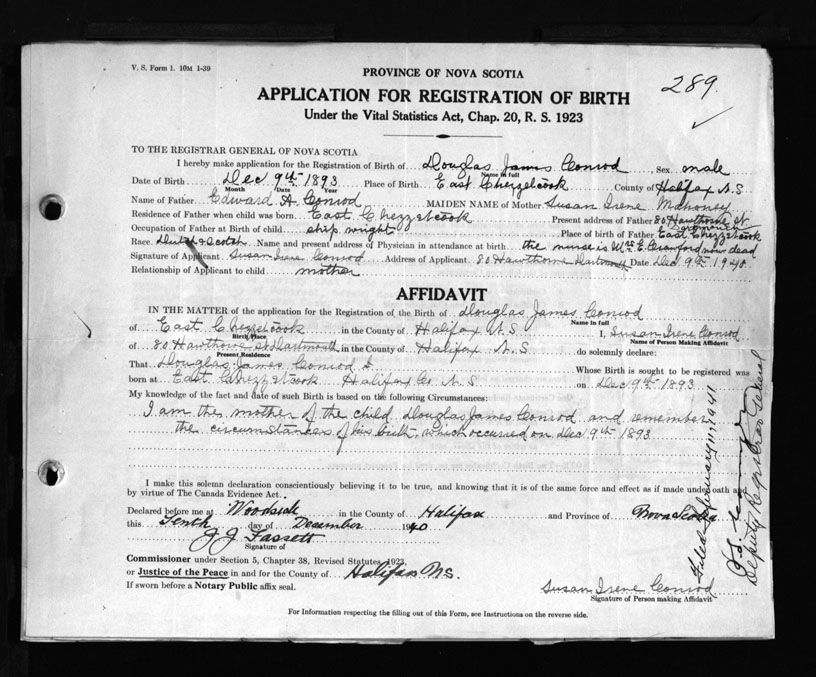 V. S. Form 1. 10M 1-39
PROVINCE OF NOVA SCOTIA
289
APPLICATION FOR REGISTRATION OF BIRTH
Under the Vital Statistics Act, Chap. 20, R. S. 1923
TO THE REGISTRAR GENERAL OF NOVA SCOTIA
I hereby make application for the Registration of Birth of Douglas James Conrod Sex male
Name in full
Date of Birth Dec 9th 1893 Place of Birth East Chezzetcook County of Halifax N.S
Month Date Year
Name of Father Edward A. Conrod MAIDEN NAME of Mother Susan Irene Mahoney
Residence of Father when child was born East Chezzetcook Present address of Father 80 Hawthorne St
Dartmouth
Occupation of Father at Birth of child ship wright Place of birth of Father East Chezzetcook
Race Dutch & Scotch Name and present address of Physician in attendance at birth the nurse is Mrs E. Crawford now dead
Signature of Applicant Susan Irene Conrod Address of Applicant 80 Hawthorne Dartmouth Date Dec 9th 1940
Relationship of Applicant to child mother
AFFIDAVIT
IN THE MATTER of the application for the Registration of the Birth of Douglas James Conrod
Name in full
of East Chezzetcook in the County of Halifax N.S. I, Susan Irene Conrod
Birth Place Name of Person Making Affidavit
of 80 Hawthorne St Dartmouth in the County of Halifax N.S. do solemnly declare:
Present Residence
That Douglas James Conrod Whose Birth is sought to be registered was
born at East Chezzetcook Halifax Co N.S on Dec 9th 1893
My knowledge of the fact and date of such Birth is based on the following Circumstances:
I am the mother of the child Douglas James Conrod and remember
the circumstances of his birth, which occurred on Dec 9th 1893
I make this solemn declaration conscientiously believing it to be true, and knowing that it is of the same force and effect as if made under oath and
by virtue of The Canada Evidence Act.
Declared before me at Woodside in the County of Halifax and Province of Nova Scotia
this Tenth day of December 1940
J J Fassett
Signature of
Commissioner under Section 5, Chapter 38, Revised Statutes 1923,
or Justice of the Peace in and for the County of Halifax N.S.
If sworn before a Notary Public affix seal.
Susan Irene Conrod
Signature of Person making Affidavit
For Information respecting the filling out of this Form, see Instructions on the reverse side.
Filed February 11, 1941
Deputy Registrar General